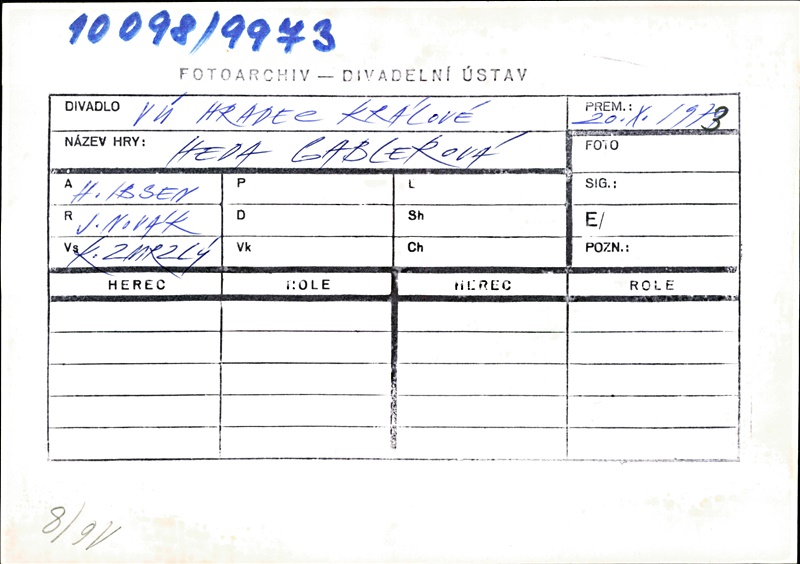 10098/9973
FOTOARCHIV — DIVADELNÍ ÚSTAV
DIVADLO VČ HRADEC KRÁLOVÉ
PREM.: 20.X. 1973
NÁZEV HRY: HEDA GABLEROVÁ
FOTO
A H. IBSEN P L
SIG.:
R J. NOVÁK D Sh
E/
Vs K. ZMRZLÝ Vk Ch
POZN.:
HEREC ROLE HEREC ROLE